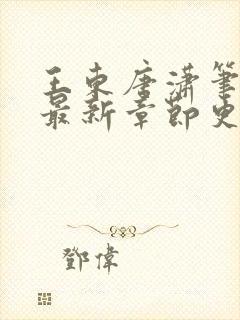 王東唐潇筆
最新章節更
鄧偉